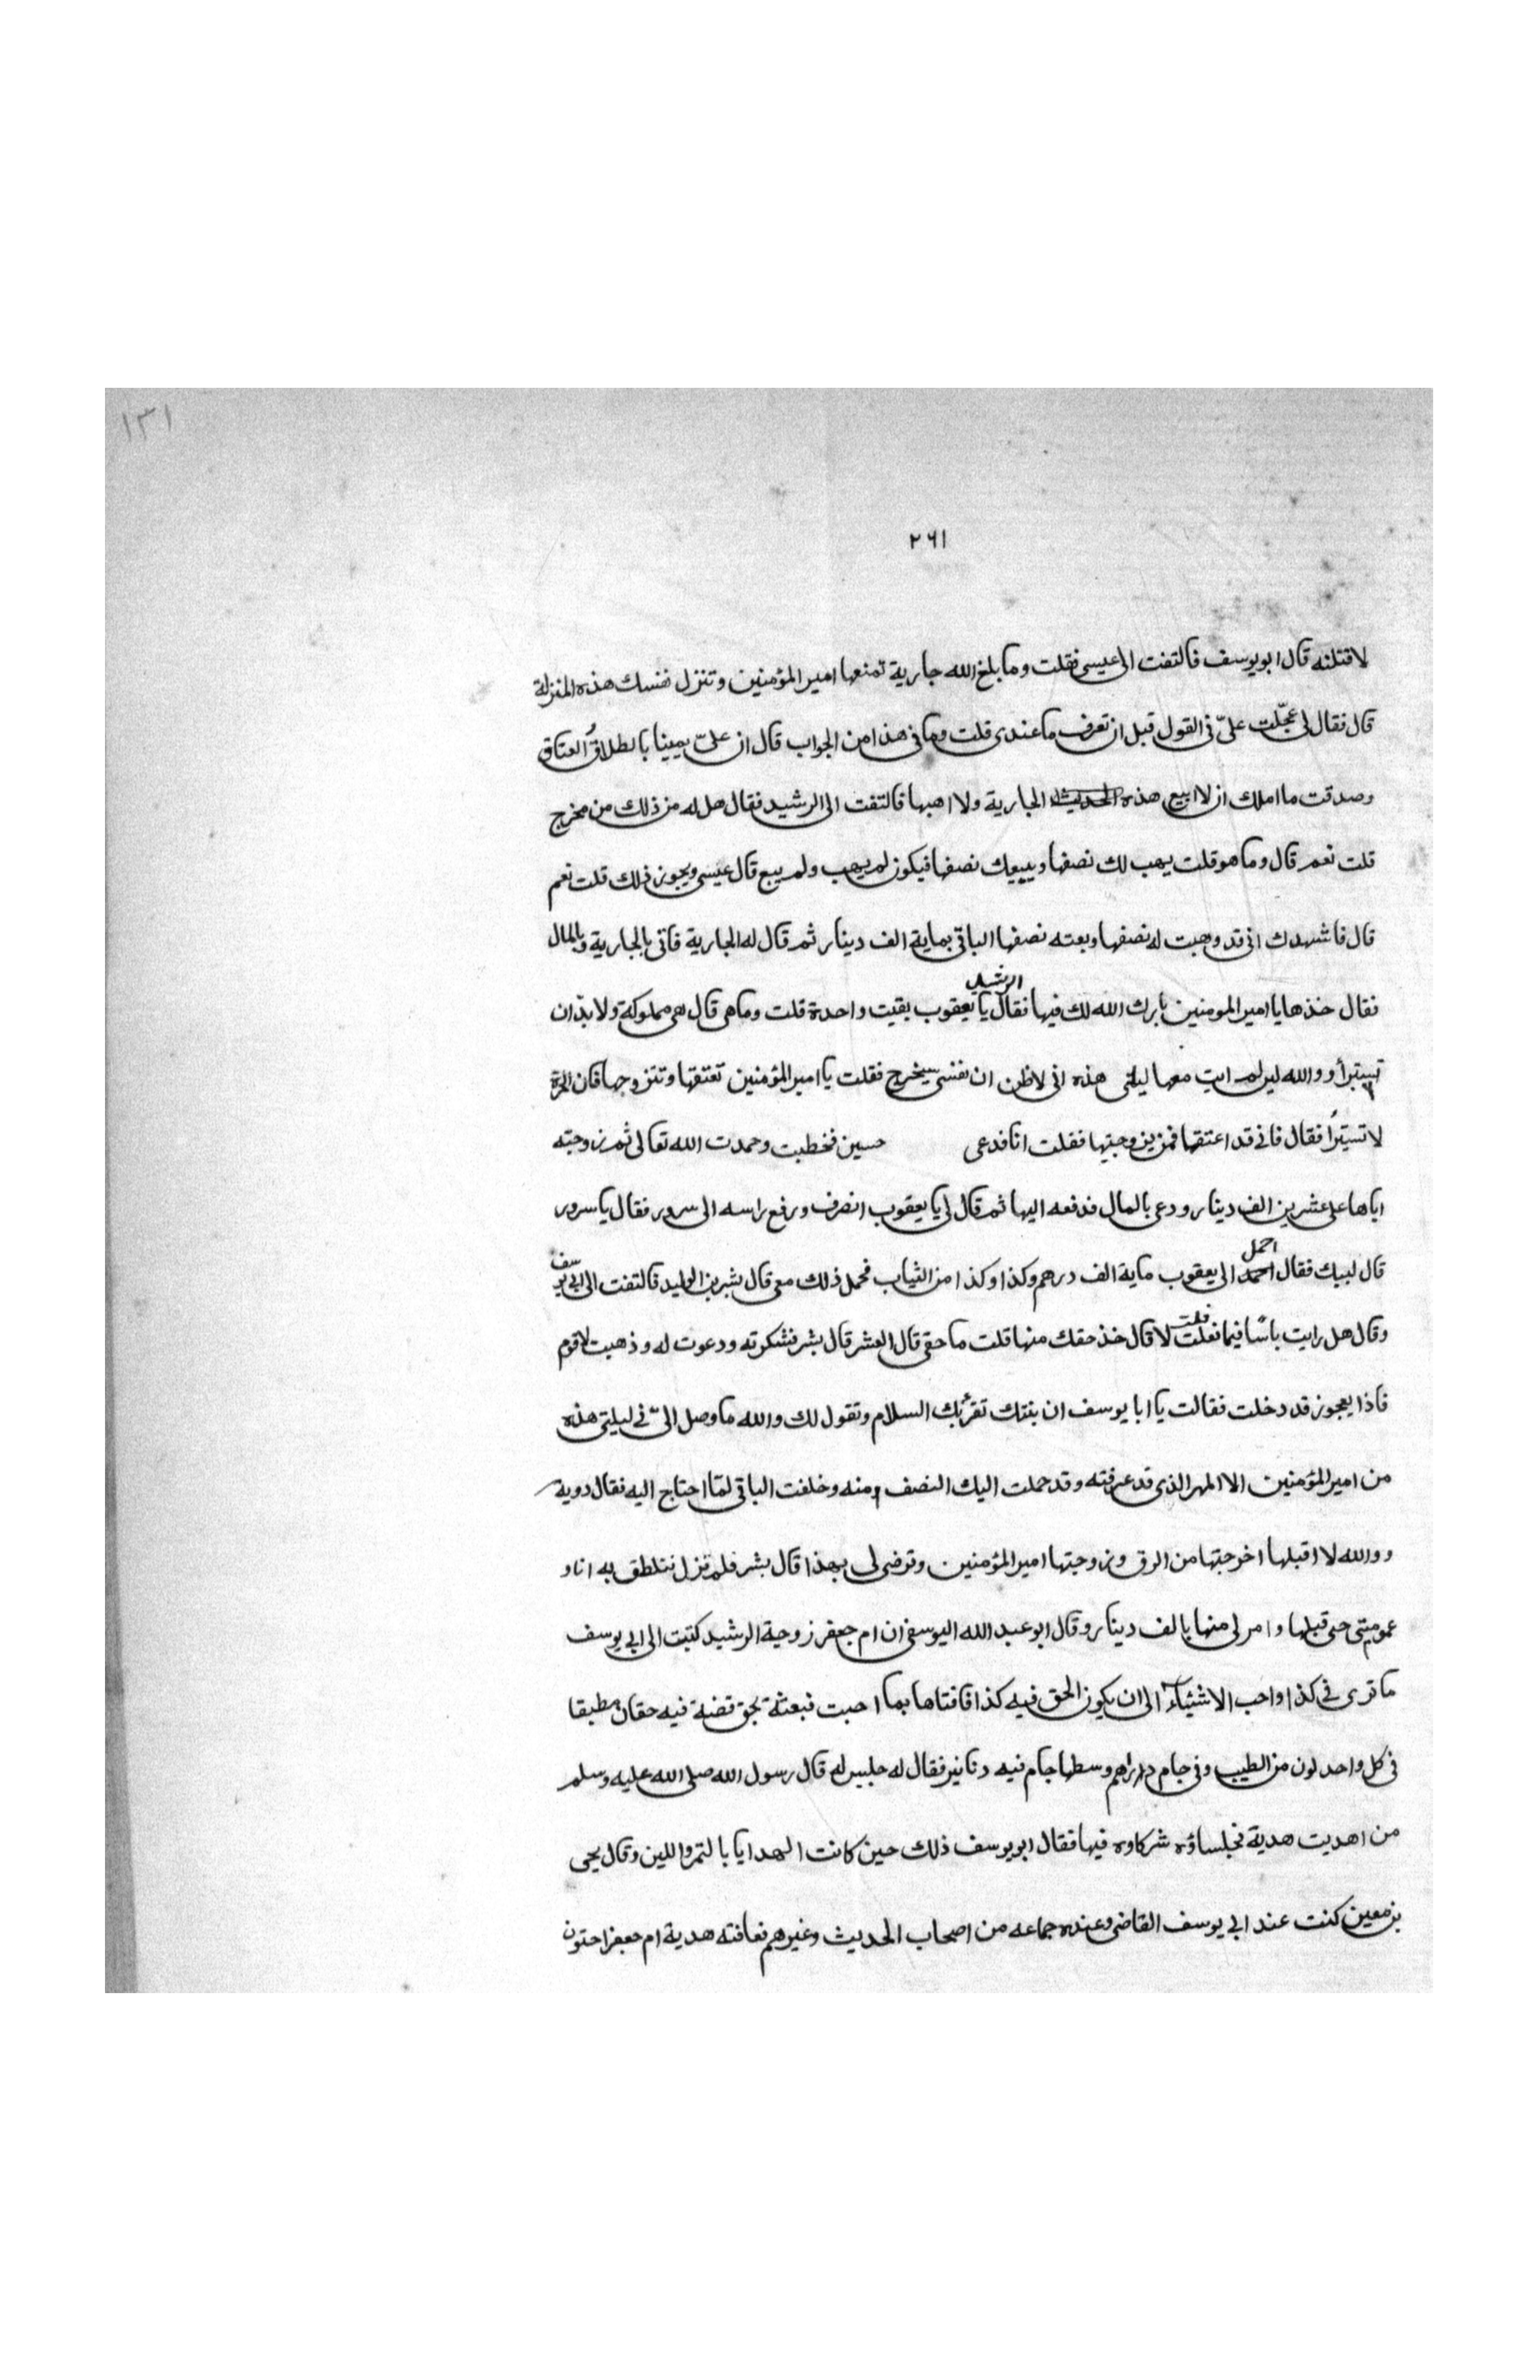 ١٣١
٢٦١
لاقتلنه قال ابو يوسف فالتفت الى عيسى فقلت وما بلغ الله جارية تمنعها امير المؤمنين وتنزل نفسك هذه المنزلة
قال فقال لى عجّلت علىّ فى القول قبل ان تعرف ما عندى قلت وما فى هذا من الجواب قال ان علىّ يمينا بالطلاق والعتاق
وصدقت ما املك ان لا ابيع هذه الجارية ولا اهبها فالتفت الى الرشيد فقال هل له من ذلك من مخرج
قلت نعم قال وما هو قلت يهب لك نصفها ويبيعك نصفها فيكون لم يهب ولم يبع قال عيسى ويجوز ذلك قلت نعم
قال فاشهدك انى قد وهبت له نصفها وبعته نصفها الباقى بماية الف دينار ثم قال له الجارية فاتى بالجارية وبالمال
فقال خذها يا امير المومنين بارك الله لك فيها فقال الرشيد يا يعقوب بقيت واحدة قلت وما هى قال هى مملوكة ولا بدّ ان
تستبرأ ووالله لين لم ابت معها ليلتى هذه انى لاظن ان نفسى سيخرج فقلت يا امير المؤمنين تعتقها وتتزوجها فان الحرة
لا تستبرأ فقال فانى قد اعتقتها فمن يزوجنيها فقلت انا فدعى حسين فخطبت وحمدت الله تعالى ثم زوجته
اياها على عشرين الف دينار ودعى بالمال فدفعه اليها ثم قال لى يا يعقوب انصرف ورفع راسه الى سرور فقال يا سرور
قال لبيك فقال احمل الى يعقوب ماية الف درهم وكذا وكذا من الثياب فحمل ذلك معى قال بشر بن الوليد فالتفت الى ابى يوسف
وقال هل رايت باسًا فيما فعلت قلت لا قال خذ حقك منها قلت ما حقى قال العشر قال بشر فشكرته ودعوت له وذهبت لاقوم
فاذا بعجوز قد دخلت فقالت يا ابا يوسف ان بنتك تقرئك السلام وتقول لك والله ما وصل الىّ فى ليلتى هذه
من امير المؤمنين الا المهر الذى قد عرفته وقد حملت اليك النصف منه وخلفت الباقى لما احتاج اليه فقال دويه
ووالله لا اقبلها اخرجتها من الرق وزوجتها امير المؤمنين وترضى لى بهذا قال بشر فلم نزل نتلطق به انا و
عمومتى حتى قبلها وامر لى منها بالف دينار وقال ابو عبد الله اليوسفى ان ام جعفر زوجية الرشيد كتبت الى ابى يوسف
ما ترى فى كذا واحب الاشياء الى ان يكون الحق فيه كذا فافتاها بما احبت فبعثة بحق فضة فيه حقان مطبقا
فى كل واحد لون من الطيب وفى جام دراهم وسطها جام فيه دنانير فقال له جليس له قال رسول الله صلى الله عليه وسلم
من اهديت هدية فجلساؤه شركاوه فيها فقال ابو يوسف ذلك حين كانت الهدايا بالتمر واللبن وقال يحى
بن معين كنت عند ابى يوسف القاضى وعنده جماعه من اصحاب الحديث وغيرهم فعافته هدية ام جعفر احتون